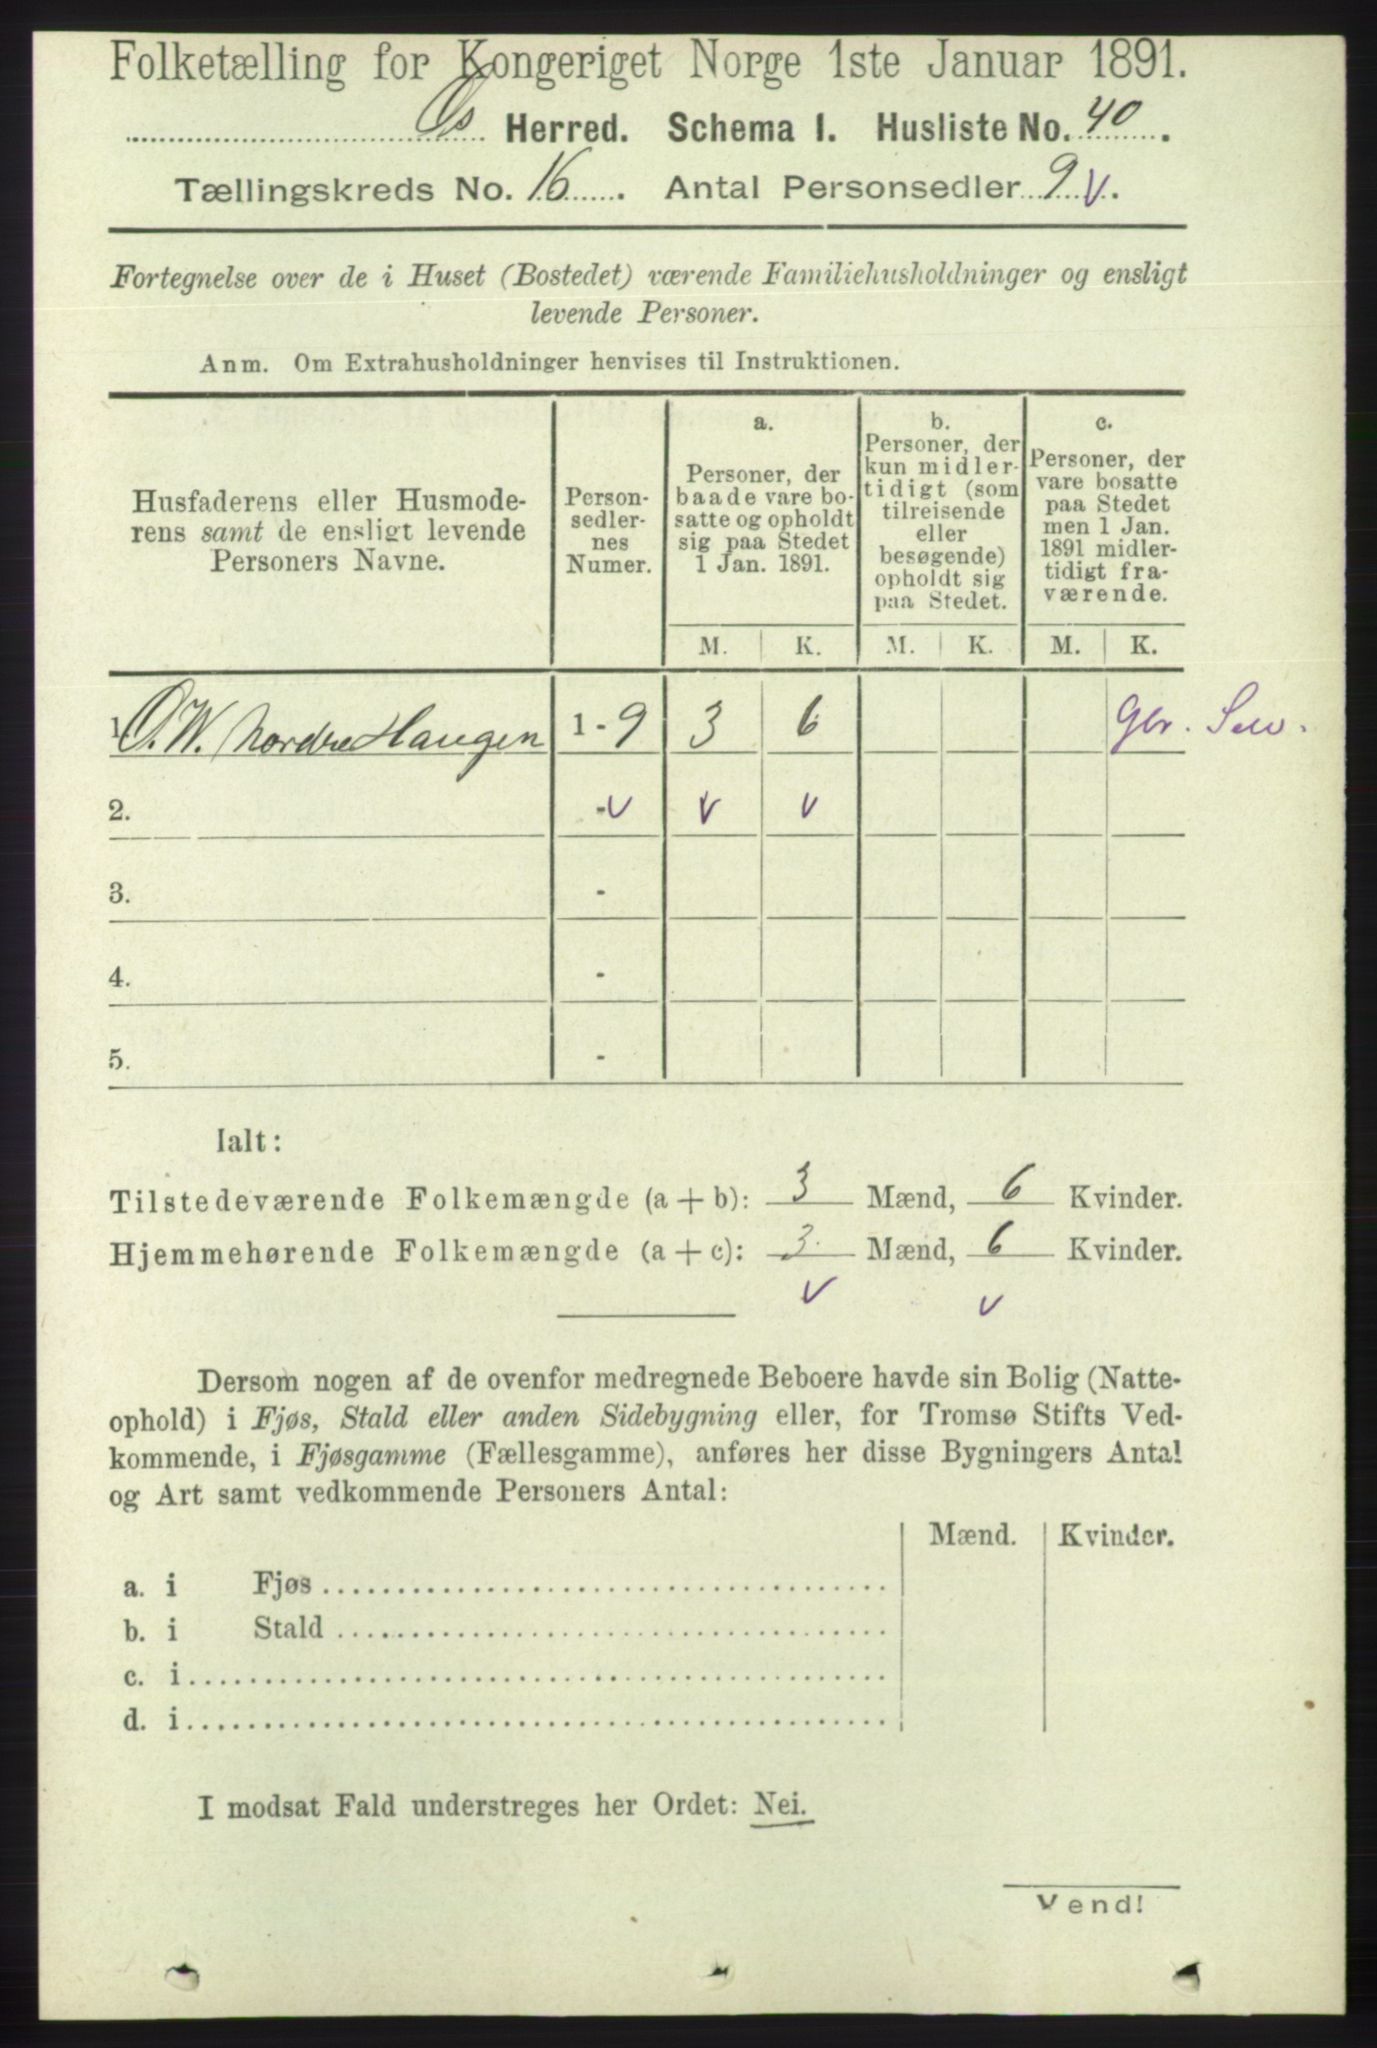 Folketælling for Kongeriget Norge 1ste Januar 1891.
Os Herred. Schema I. Husliste No. 40.
Tællingskreds No. 16. Antal Personsedler 9 v.
Fortegnelse over de i Huset (Bostedet) værende Familiehusholdninger og ensligt
levende Personer.
Anm. Om Extrahusholdninger henvises til Instruktionen.
Husfaderens eller Husmode-
rens samt de ensligt levende
Personers Navne.
Person-
sedler-
nes
Numer.
a.
Personer, der
baade vare bo-
satte og opholdt
sig paa Stedet
1 Jan. 1891.
b.
Personer, der
kun midler-
tidigt (som
tilreisende
eller
besøgende)
opholdt sig
paa Stedet.
c.
Personer, der
vare bosatte
paa Stedet
men 1 Jan.
1891 midler-
tidigt fra-
værende.
M. K. M. K. M. K.
1 O. W. Nordre Haugen 1 - 9 3 6 Gbr.
2. - v v v
3. -
4. -
5. -
Ialt:
Tilstedeværende Folkemængde (a + b): 3 Mænd, 6 Kvinder.
Hjemmehørende Folkemængde (a + c): 3 Mænd, 6 Kvinder.
v v
Dersom nogen af de ovenfor medregnede Beboere havde sin Bolig (Natte-
ophold) i Fjøs, Stald eller anden Sidebygning eller, for Tromsø Stifts Ved-
kommende, i Fjøsgamme (Fællesgamme), anføres her disse Bygningers Antal
og Art samt vedkommende Personers Antal:
Mænd. Kvinder.
a. i Fjøs
b. i Stald
c. i
d. i
I modsat Fald understreges her Ordet: Nei.
Vend!